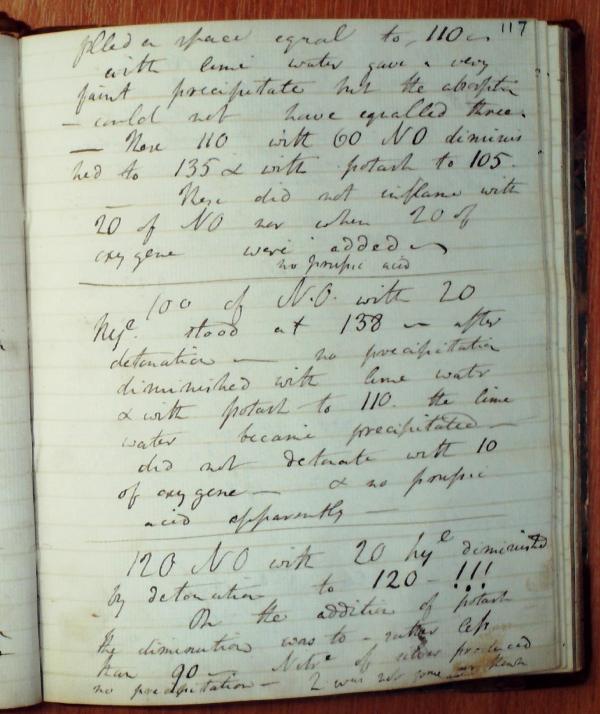 117
filled a space equal to 110 -
with lime water gave a very
faint precipitate but the absorption
- could not have equalled three.
- These 110 with 60 NO diminis
hed to 135 & with potash to 105.
- These did not inflame with
20 of NO nor when 20 of
oxygene were added -
no prussic acid
100 of N.O. with 20
Hye. stood at 138 - after
detonation - no precipitation
diminished with lime water
& with potash to 110. the lime
water became precipitated -
did not detonate with 10
of oxygene - & no prussic
acid apparently -
120 NO with 20 hye diminished
by detonation to 120 - !!!
On the addition of potash
the diminution was to - rather less
than 90 - Nitre of silver produced
no precipitation - 2 was not